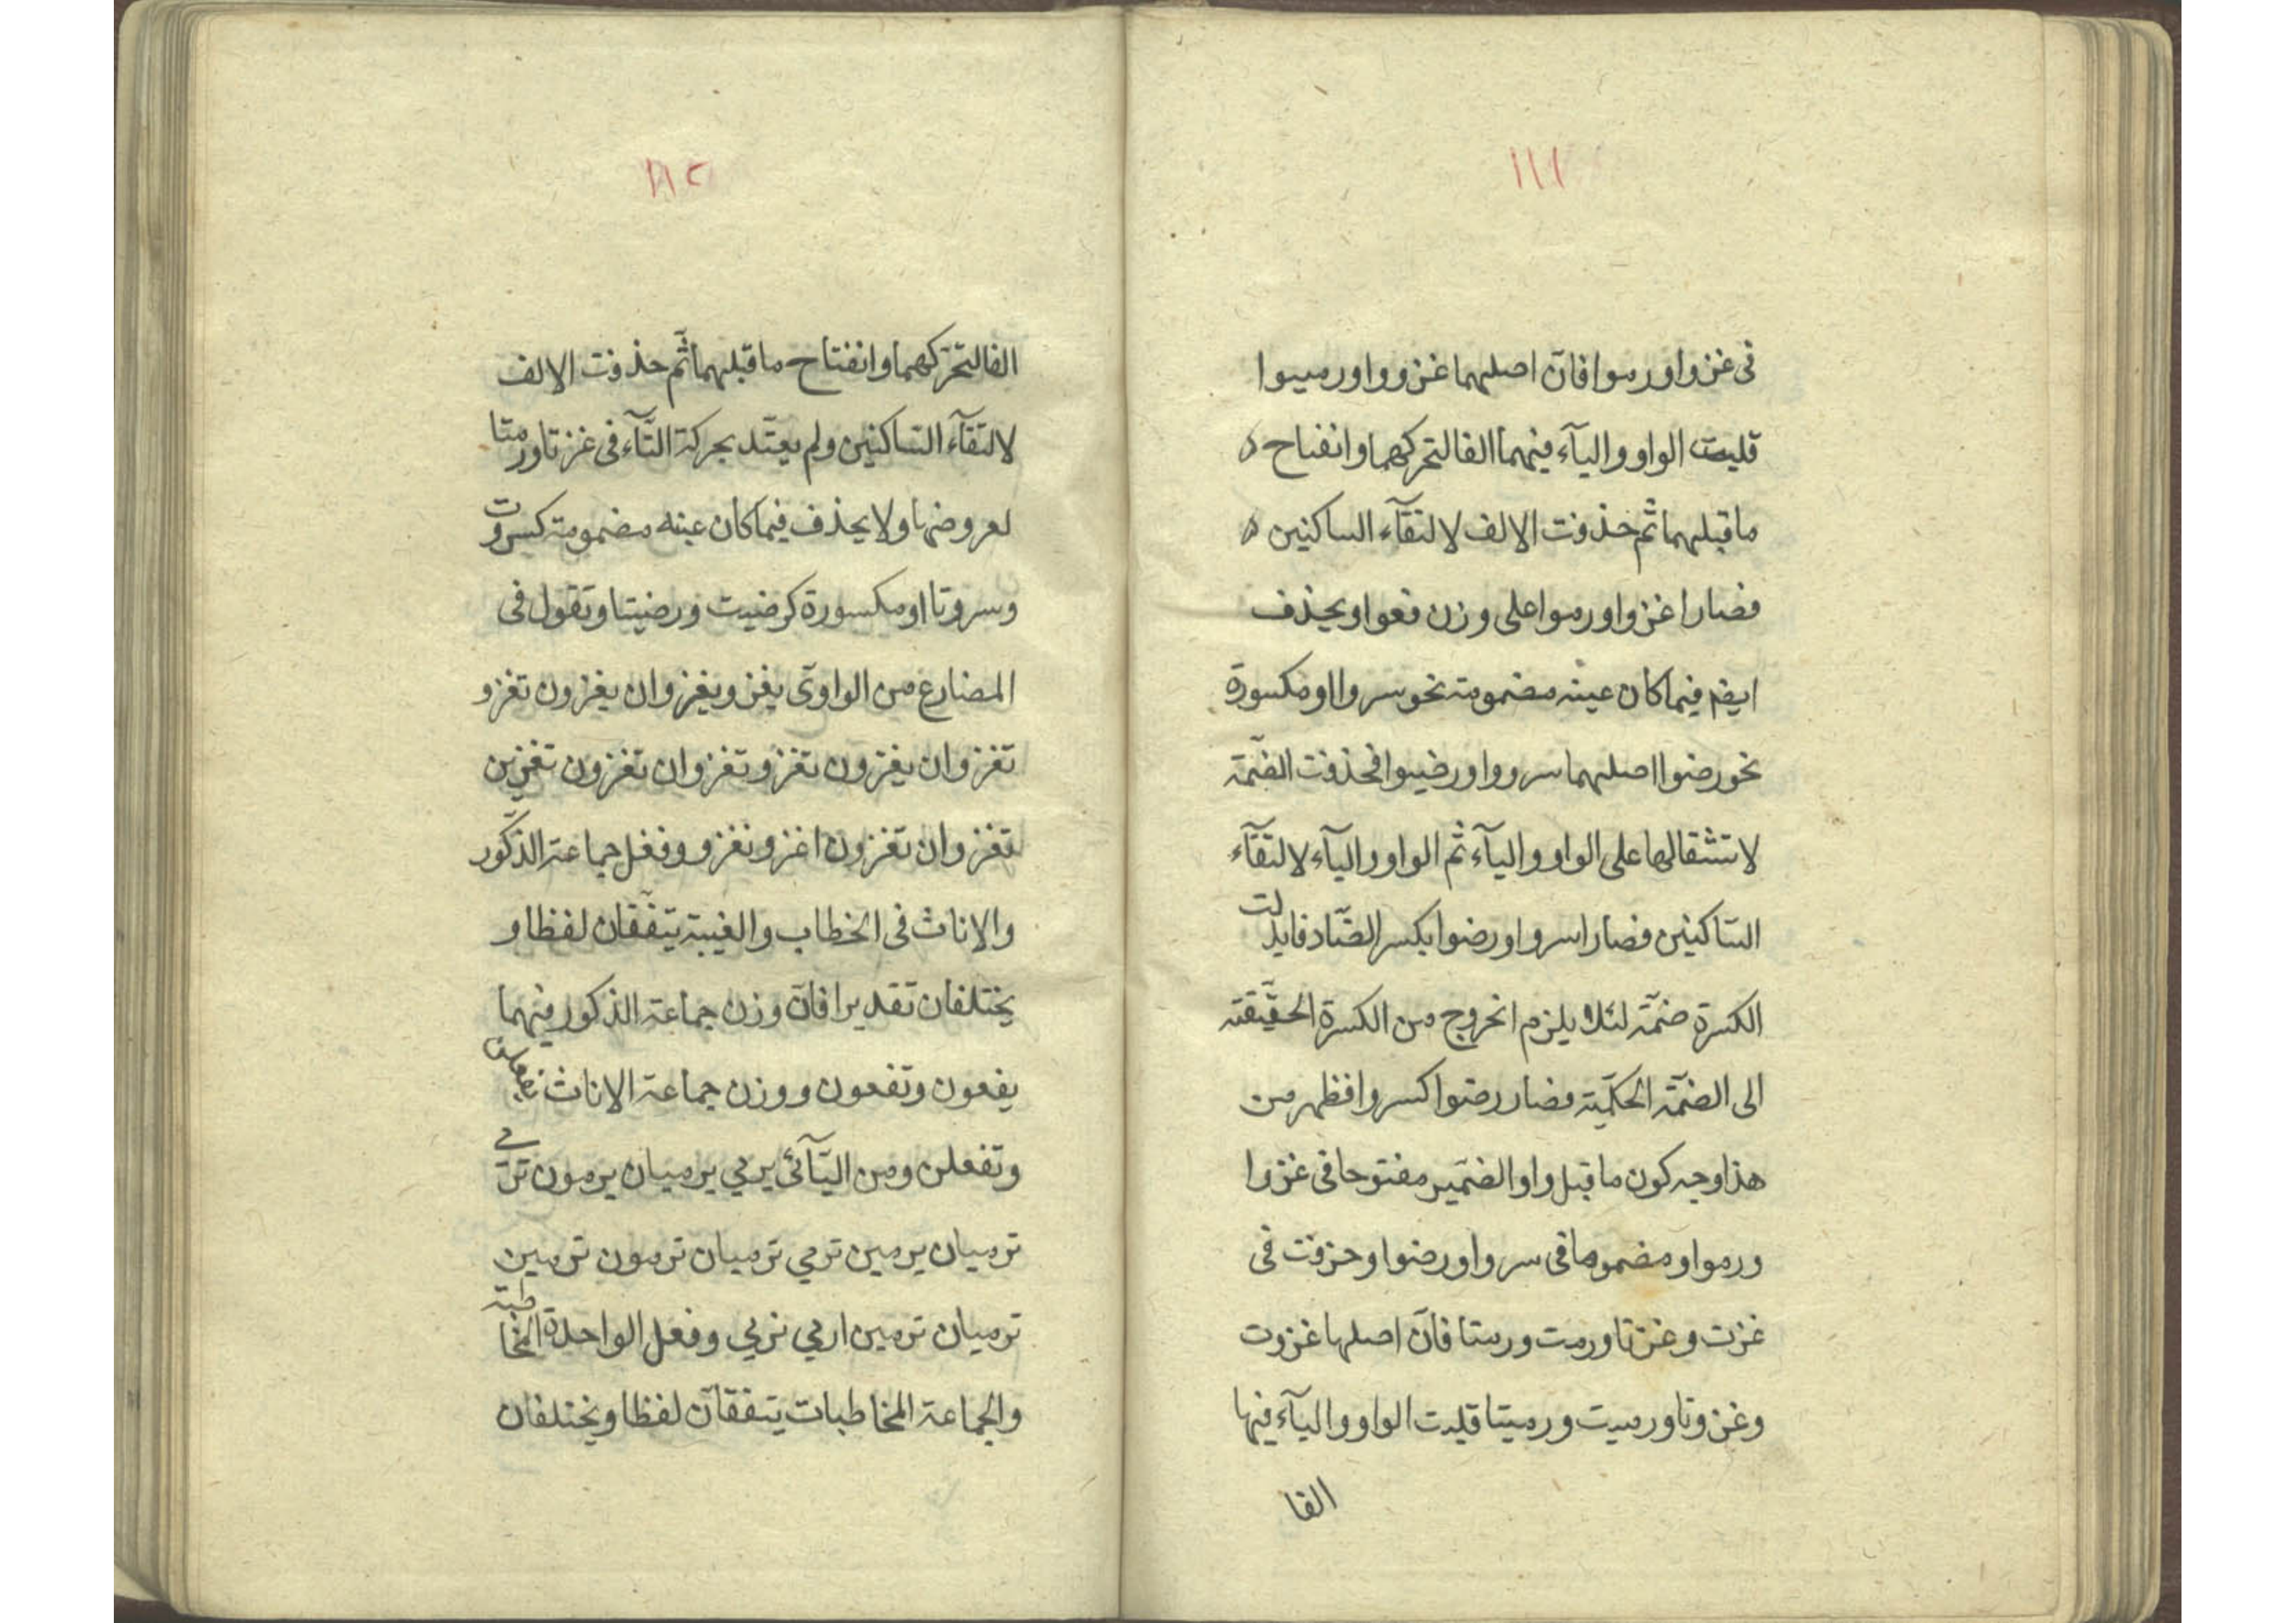 ١١١
فى غزوا ورموا فانّ اصلهما غزووا ورميوا
قلبت الواو والياۤء فيهما الفا لتحركهما وانفتاح
ما قبلهما ثم حذفت الالف لالتقاۤء الساكنين
فصارا غزوا ورموا على وزن فعوا ويحذف
ايضم فيما كان عينه مضمومة نحو سروا او مكسورة
نحو رضوا اصلهما سرووا ورضيوا فحذفت الضّمة
لاستثقالها على الواو والياۤء ثم الواو والياۤء لالتقاۤء
السّاكنين فصارا سروا ورضوا بكسر الضّاد فابدلت
الكسرة ضمّة لئلا يلزم الخروج من الكسرة الحقيّقة
الى الضمّة الحكميّة فصار رضوا كسروا فظهر من
هذا وجه كون ما قبل واو الضمير مفتوحا فى غزوا
ورموا ومضموما فى سروا ورضوا وحزفت فى
غزت وغزتا ورمت ورمتا فانّ اصلها غزوت
وغزوتا ورميت ورميتا قلبت الواو والياۤء فيها
الفا
١١٢
الفا لتحرّكهما وانفتاح ما قبلهما ثّم حذفت الالف
لالتقاۤء السّاكنين ولم يعتّد بحركة التّاۤء فى غزتا ورمتا
لعروضها ولا يحذف فيما كان عينه مضمومة كسروت
وسروتا او مكسورة كرضيت ورضيتا وتقول فى
المضارع من الواوىّ يغزو يغزوان يغزون تغزو
تغزوان يغزون تغزو تغزوان تغزون تغزين
تغزوان تغزون اغزو نغزو وفعل جماعة الذّكور
والاناث فى الخطاب والغيبة يتّفقان لفظا و
يختلفان تقديرا فانّ وزن جماعة الذكور فيهما
يفعون وتفعون ووزن جماعة الاناث يفعلن
وتفعلن ومن اليّاۤئى يرمي يرميان يرمون ترمي
ترميان يرمين ترمي ترميان ترمون ترمين
ترميان ترمين ارمي نرمي وفعل الواحدة المخاطبة
والجماعة المخاطبات يتفقاّن لفظا ويختلفان